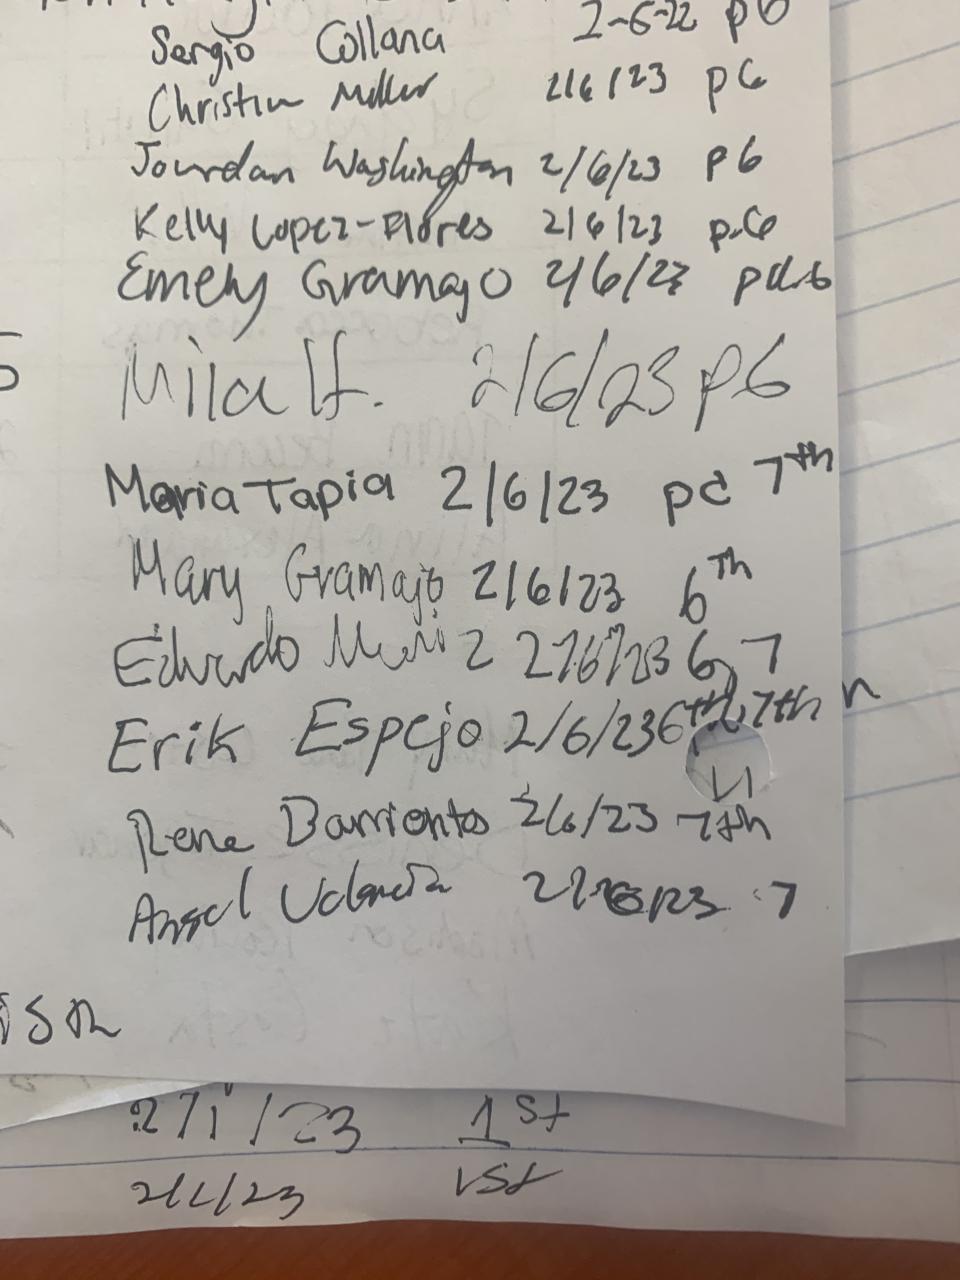 Sergio Collana 2-6-22 p6
Christin Miller 2/6/23 p6
Jourdan Washington 2/6/23 p6
Kelly Lopez-Flores 2/6/23 p.6
Emely Gramajo 2/6/23 pd.6
Mila H. 2/6/23 p6
Maria Tapia 2/6/23 pd 7th
Mary Gramajo 2/6/23 6th
Eduardo Muniz 2/6/23 6, 7
Erik Espejo 2/6/23 6th, 7th
Rene Barrientos 2/6/23 7th
Angel Valencia 2/6/23 7
2/1/23 1st
2/1/23 1st